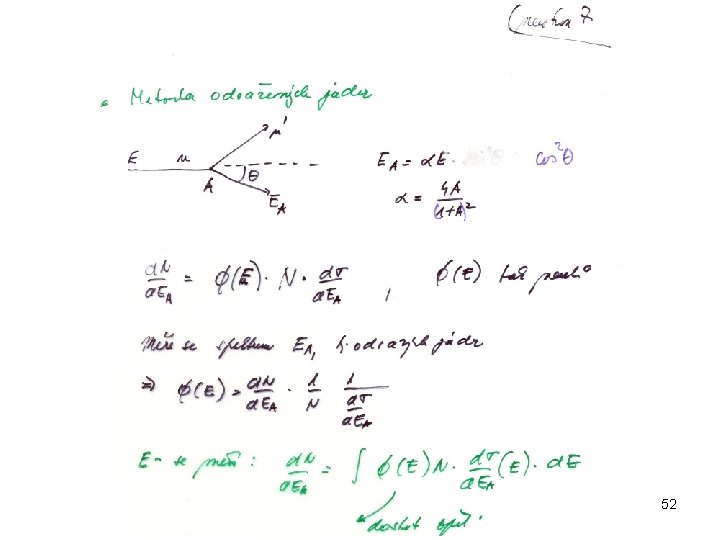 • Metoda odražených jader
E n n' A θ E_A
E_A = αE · cos²θ
α = 4A / (1+A)²
dN/dE_A = φ(E) · N · dσ/dE_A , φ(E) tok
Měří se spektrum E_A, odražených jader
⇒ φ(E) = dN/dE_A · 1/N · 1/(dσ/dE_A)
E - se mění : dN/dE_A = ∫ φ(E) N · dσ/dE_A (E) · dE
52